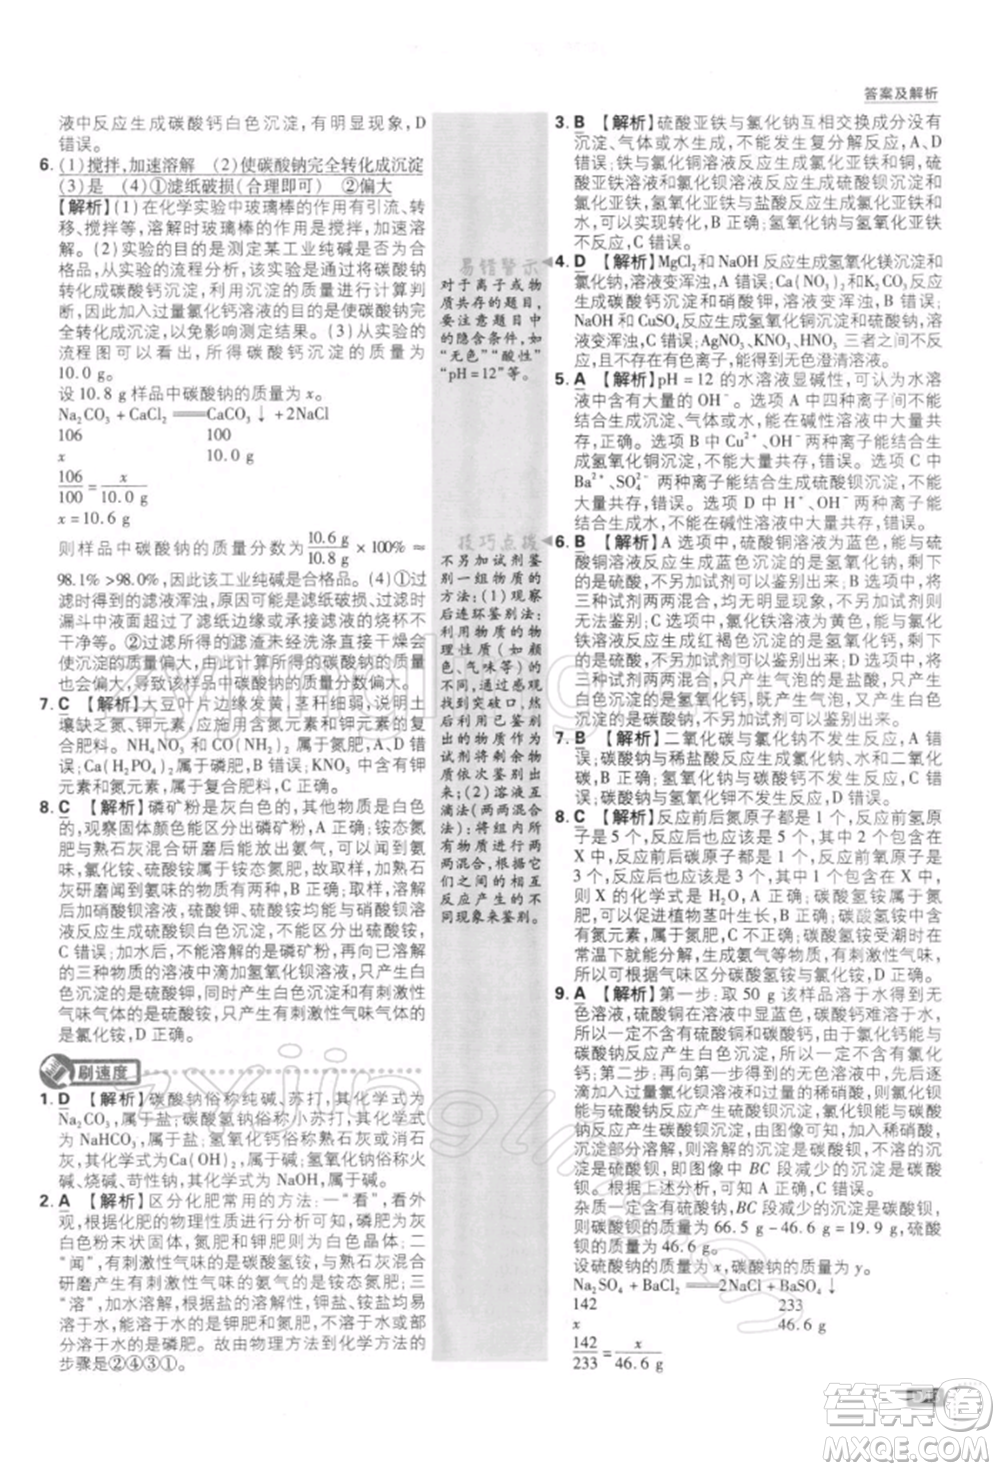 答案及解析
液中反应生成碳酸钙白色沉淀,有明显现象,D
错误。
6. (1)搅拌,加速溶解 (2)使碳酸钠完全转化成沉淀
(3)是 (4)①滤纸破损(合理即可) ②偏大
【解析】(1)在化学实验中玻璃棒的作用有引流、转
移、搅拌等,溶解时玻璃棒的作用是搅拌,加速溶
解。(2)实验的目的是测定某工业纯碱是否为合
格品,从实验的流程分析,该实验需要将碳酸钠
转化成碳酸钙沉淀,利用沉淀的质量进行计算判
断,因此加入过量氯化钙溶液的目的是使碳酸钠完
全转化成沉淀,以免影响测定结果。(3)从实验的
流程图可以看出,所得碳酸钙沉淀的质量为
10.0 g。
设 10.8 g 样品中碳酸钠的质量为 x。
Na₂CO₃ + CaCl₂ ══ CaCO₃↓ +2NaCl
106 100
x 10.0 g
106/100 = x/10.0 g
x = 10.6 g
则样品中碳酸钠的质量分数为 10.6 g/10.8 g × 100% ≈
98.1% >98.0%,因此该工业纯碱是合格品。(4)①过
滤时得到的滤液浑浊,可能是滤纸破损、过滤时
漏斗中液面超过了滤纸边缘或承接滤液的烧杯不
干净等。②过滤所得的滤渣未经洗涤直接干燥会
使沉淀的质量偏大,由此计算所得的碳酸钠的质
量偏大,导致该样品中碳酸钠的质量分数偏大。
7. C 【解析】大豆叶片边缘发黄,茎秆细弱,说明土
壤缺乏氮、钾元素,应施用含氮元素和钾元素的复
合肥。NH₄NO₃ 和 CO(NH₂)₂ 属于氮肥,A、B 错
误;Ca(H₂PO₄)₂ 属于磷肥,D 错误;KNO₃ 中含有钾
元素和氮元素,属于复合肥,C 正确。
8. C 【解析】磷矿粉是灰白色的,其他物质都是白色
的,观察固体颜色能区分出磷矿粉,A 正确;铵态氮
肥与熟石灰混合研磨能放出氨气,可以闻到氨
味,氯化铵、硫酸铵属于铵态氮肥,故取样,加熟石
灰研磨闻到氨味的物质有两种,B 正确;取样,溶解
后加入硝酸钡溶液,硫酸钾、硫酸铵均能与硝酸钡
反应生成硫酸钡白色沉淀,不能鉴别出硫酸铵,
C 错误;加水后,不能溶解的是磷矿粉,再向已溶解
的三种物质的溶液中滴加氢氧化钡溶液,只产生沉
淀的是硫酸钾,既产生白色沉淀,又有刺激性
气味气体的是硫酸铵,只产生有刺激性气味气体的
是氯化铵,D 正确。
刷速度
1. D 【解析】碳酸钠俗称纯碱、苏打,其化学式为
Na₂CO₃,属于盐;碳酸氢钠俗称小苏打,其化学式
为 NaHCO₃,属于盐;氢氧化钙俗称熟石灰或消石
灰,其化学式为Ca(OH)₂,属于碱;氢氧化钠俗称火
碱、烧碱、苛性钠,其化学式为 NaOH,属于碱。
2. A 【解析】区分化肥常用的方法:一“看”,看外
观,根据化肥的物理性质分析可知,磷肥为灰白
色粉末状固体,氮肥和钾肥为白色晶体;二
“闻”,有刺激性气味的是碳酸氢铵,与熟石灰混合
研磨产生有刺激性气味的氨气的是铵态氮肥;三
“溶”,加水溶解,根据盐的溶解性,钾盐、铵盐均
易溶于水,则易溶于水的是钾肥和氮肥,大多不
溶于水的是磷肥。故由物理方法到化学方法的
步骤是②④③①。
易错警示
对于离子或物
质共存的题目,
要注意题目中
的隐含条件,如
“无色”“酸性”
“pH=12”等。
技巧点拨
不另加试剂鉴
别一组物质的
方法:(1)观察
后连环鉴别法:
利用物质的物
理性质(如颜
色、气味等)的
不同,进行鉴别,
然后用已鉴别
出的物质作为
试剂鉴别剩余物
质依次鉴别出
来;(2)溶液互
滴法(两两混合
法):将物质进行两
两混合,根据它
们之间的相互
反应产生的不
同现象来鉴别。
3. B 【解析】硫酸亚铁与氯化钠互相交换成分没有
沉淀、气体或水生成,不能发生复分解反应,A、
D 错误;铁与氯化铜溶液反应生成氯化亚铁和铜,硫
酸亚铁溶液和氯化钡溶液反应生成硫酸钡沉淀和
氯化亚铁,氢氧化亚铁与盐酸反应生成氯化亚铁和
水,可以实现转化,B 正确;氢氧化钠与氢氧化亚铁
不反应,C 错误。
4. D 【解析】MgCl₂ 和 NaOH 反应生成氢氧化镁沉淀和
氯化钠,溶液变浑浊,A 错误;Ca(NO₃)₂ 和 K₂CO₃ 反应
生成碳酸钙沉淀和硝酸钾,溶液变浑浊,B 错误;
NaOH 和 CuSO₄ 反应生成氢氧化铜沉淀和硫酸钠,溶
液变浑浊,C 错误;NH₄NO₃、KNO₃、HNO₃ 三者之间
不反应,且不存在有色离子,能得到无色澄清溶液。
5. A 【解析】pH = 12 的溶液显碱性,可认为水溶液
中含有大量的 OH⁻。选项 A 中四种离子间不能
结合生成沉淀、气体或水,在碱性溶液中能大量共
存,正确。选项 B 中 Cu²⁺、OH⁻ 两种离子能结合生
成氢氧化铜沉淀,不能大量共存,错误。选项 C 中
Ba²⁺、SO₄²⁻ 两种离子能结合生成硫酸钡沉淀,不能
大量共存,错误。选项 D 中 H⁺、OH⁻ 两种离子能
结合生成水,不能在碱性溶液中大量共存,错误。
6. B 【解析】A 选项中,硫酸铜溶液为蓝色,能与
硫酸铜溶液反应生成蓝色沉淀的是氢氧化钠,剩下
的是硫酸钠,不另加试剂可以鉴别出来;B 选项中,将
三种试剂两两混合,均无明显现象,不另加试剂
无法鉴别;C 选项中,氯化铁溶液为黄色,能与氯化铁
溶液反应生成红褐色沉淀的是氢氧化钠,剩下
的是氯化钠,不另加试剂可以鉴别出来;D 选项中,将
三种试剂两两混合,只产生气泡的是盐酸,只产生
沉淀的是氢氧化钙,既产生气泡,又产生
沉淀的是碳酸钠,不另加试剂可以鉴别出来。
7. B 【解析】二氧化碳与氯化钠不反应,A 错
误;碳酸钠与稀盐酸反应生成氯化钠、水和二氧化
碳,B 正确;氯化钠与碳酸钠不反应,C 错误;二氧化
碳与氢氧化钾不能生成氯化钠,D 错误。
8. C 【解析】反应前后氮原子都是 1 个,反应前氢原
子是 5 个,反应后也应该是 5 个,其中 2 个包含在
X 中,反应前后碳原子都是 1 个,反应前氧原子是
3 个,反应后也应该是 3 个,其中 1 个包含在 X
中,则 X 的化学式是 H₂O,A 正确;碳酸氢铵属于氮
肥,可以促进植物茎叶生长,B 正确;碳酸氢铵中含
有氮元素,属于氮肥,C 错误;碳酸氢铵受潮时在
常温下即能分解,生成氨气等物质,有刺激性气味,
可以根据气味区分碳酸氢铵与氯化铵,D 正确。
9. A 【解析】第一步:取 50 g 该样品溶于水得到无
色溶液,所以一定不含有硫酸铜,硫酸钙难溶于水,
所以不含有碳酸钙。由于氯化钙能与硫
酸钠、碳酸钠反应产生沉淀,所以不含有氯化
钙;第二步:再向其中加入过量氯化钡溶
液,能与硫酸钠反应生成硫酸钡沉淀,与碳酸钠反
应生成碳酸钡沉淀,由图像可知,加入足量稀硝酸,
沉淀部分溶解,所以样品中一定含有碳酸钠和硫
酸钠,图像中 BC 段减少的沉淀是碳酸钡,故
杂质一定含有硫酸钠,BC 段减少的沉淀是碳酸钡,
则碳酸钡的质量为 66.5 g - 46.6 g = 19.9 g,硫酸
钡的质量为 46.6 g。
设硫酸钠的质量为 x,碳酸钠的质量为 y。
Na₂SO₄ + BaCl₂ ══ 2NaCl + BaSO₄↓
142 233
x 46.6 g
142/233 = x/46.6 g
答案圈
MXQE.COM
zyjl.cn